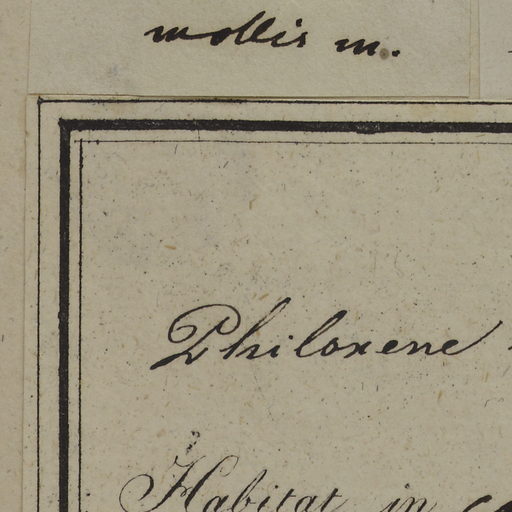 mollis m.
Philoxene
Habitat in